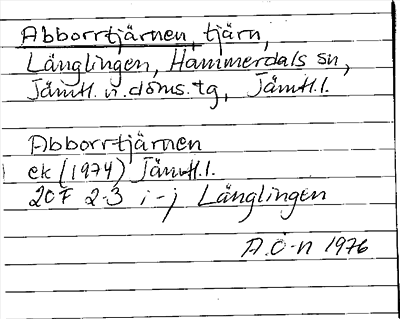 Abborrtjärnen, tjärn,
Långlingen, Hammerdals sn,
Jämtl. n. doms. tg, Jämtl. l.
Abborrtjärnen
ek (1974) Jämtl. l.
20F 2-3 i-j Långlingen
A.Ö-n 1976